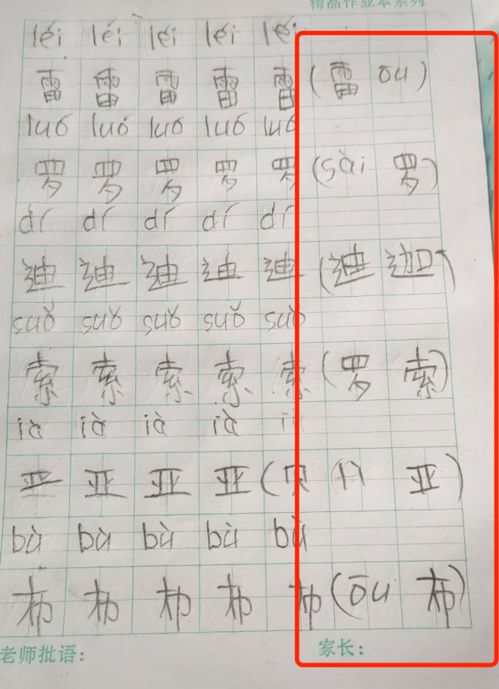 精品作业本系列
léi léi léi léi léi
雷 雷 雷 雷 雷 (雷 ōu)
luó luó luó luó luó
罗 罗 罗 罗 罗 (sài 罗)
dí dí dí dí dí
迪 迪 迪 迪 迪 (迪
suǒ suǒ suǒ suǒ suǒ
索 索 索 索 索 (罗 索)
ià ià ià ià
亚 亚 亚 亚 (贝 亚)
bù bù bù bù bù
布 布 布 布 布 (ōu 布)
老师批语： 家长：